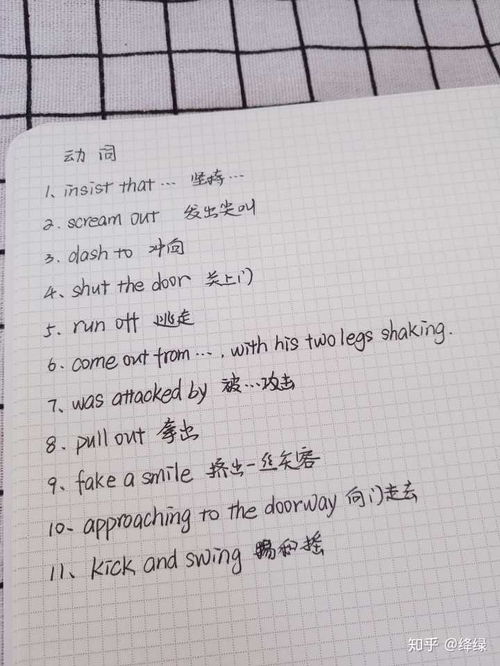 动词
1、insist that … 坚持…
2、scream out 发出尖叫
3、dash to 冲向
4、shut the door 关上门
5、run off 逃走
6、come out from …, with his two legs shaking.
7、was attacked by 被…攻击
8、pull out 拿出
9、fake a smile 挤出一丝笑容
10、approaching to the doorway 向门走去
11、kick and swing 踢和摇
知乎 @绛绿